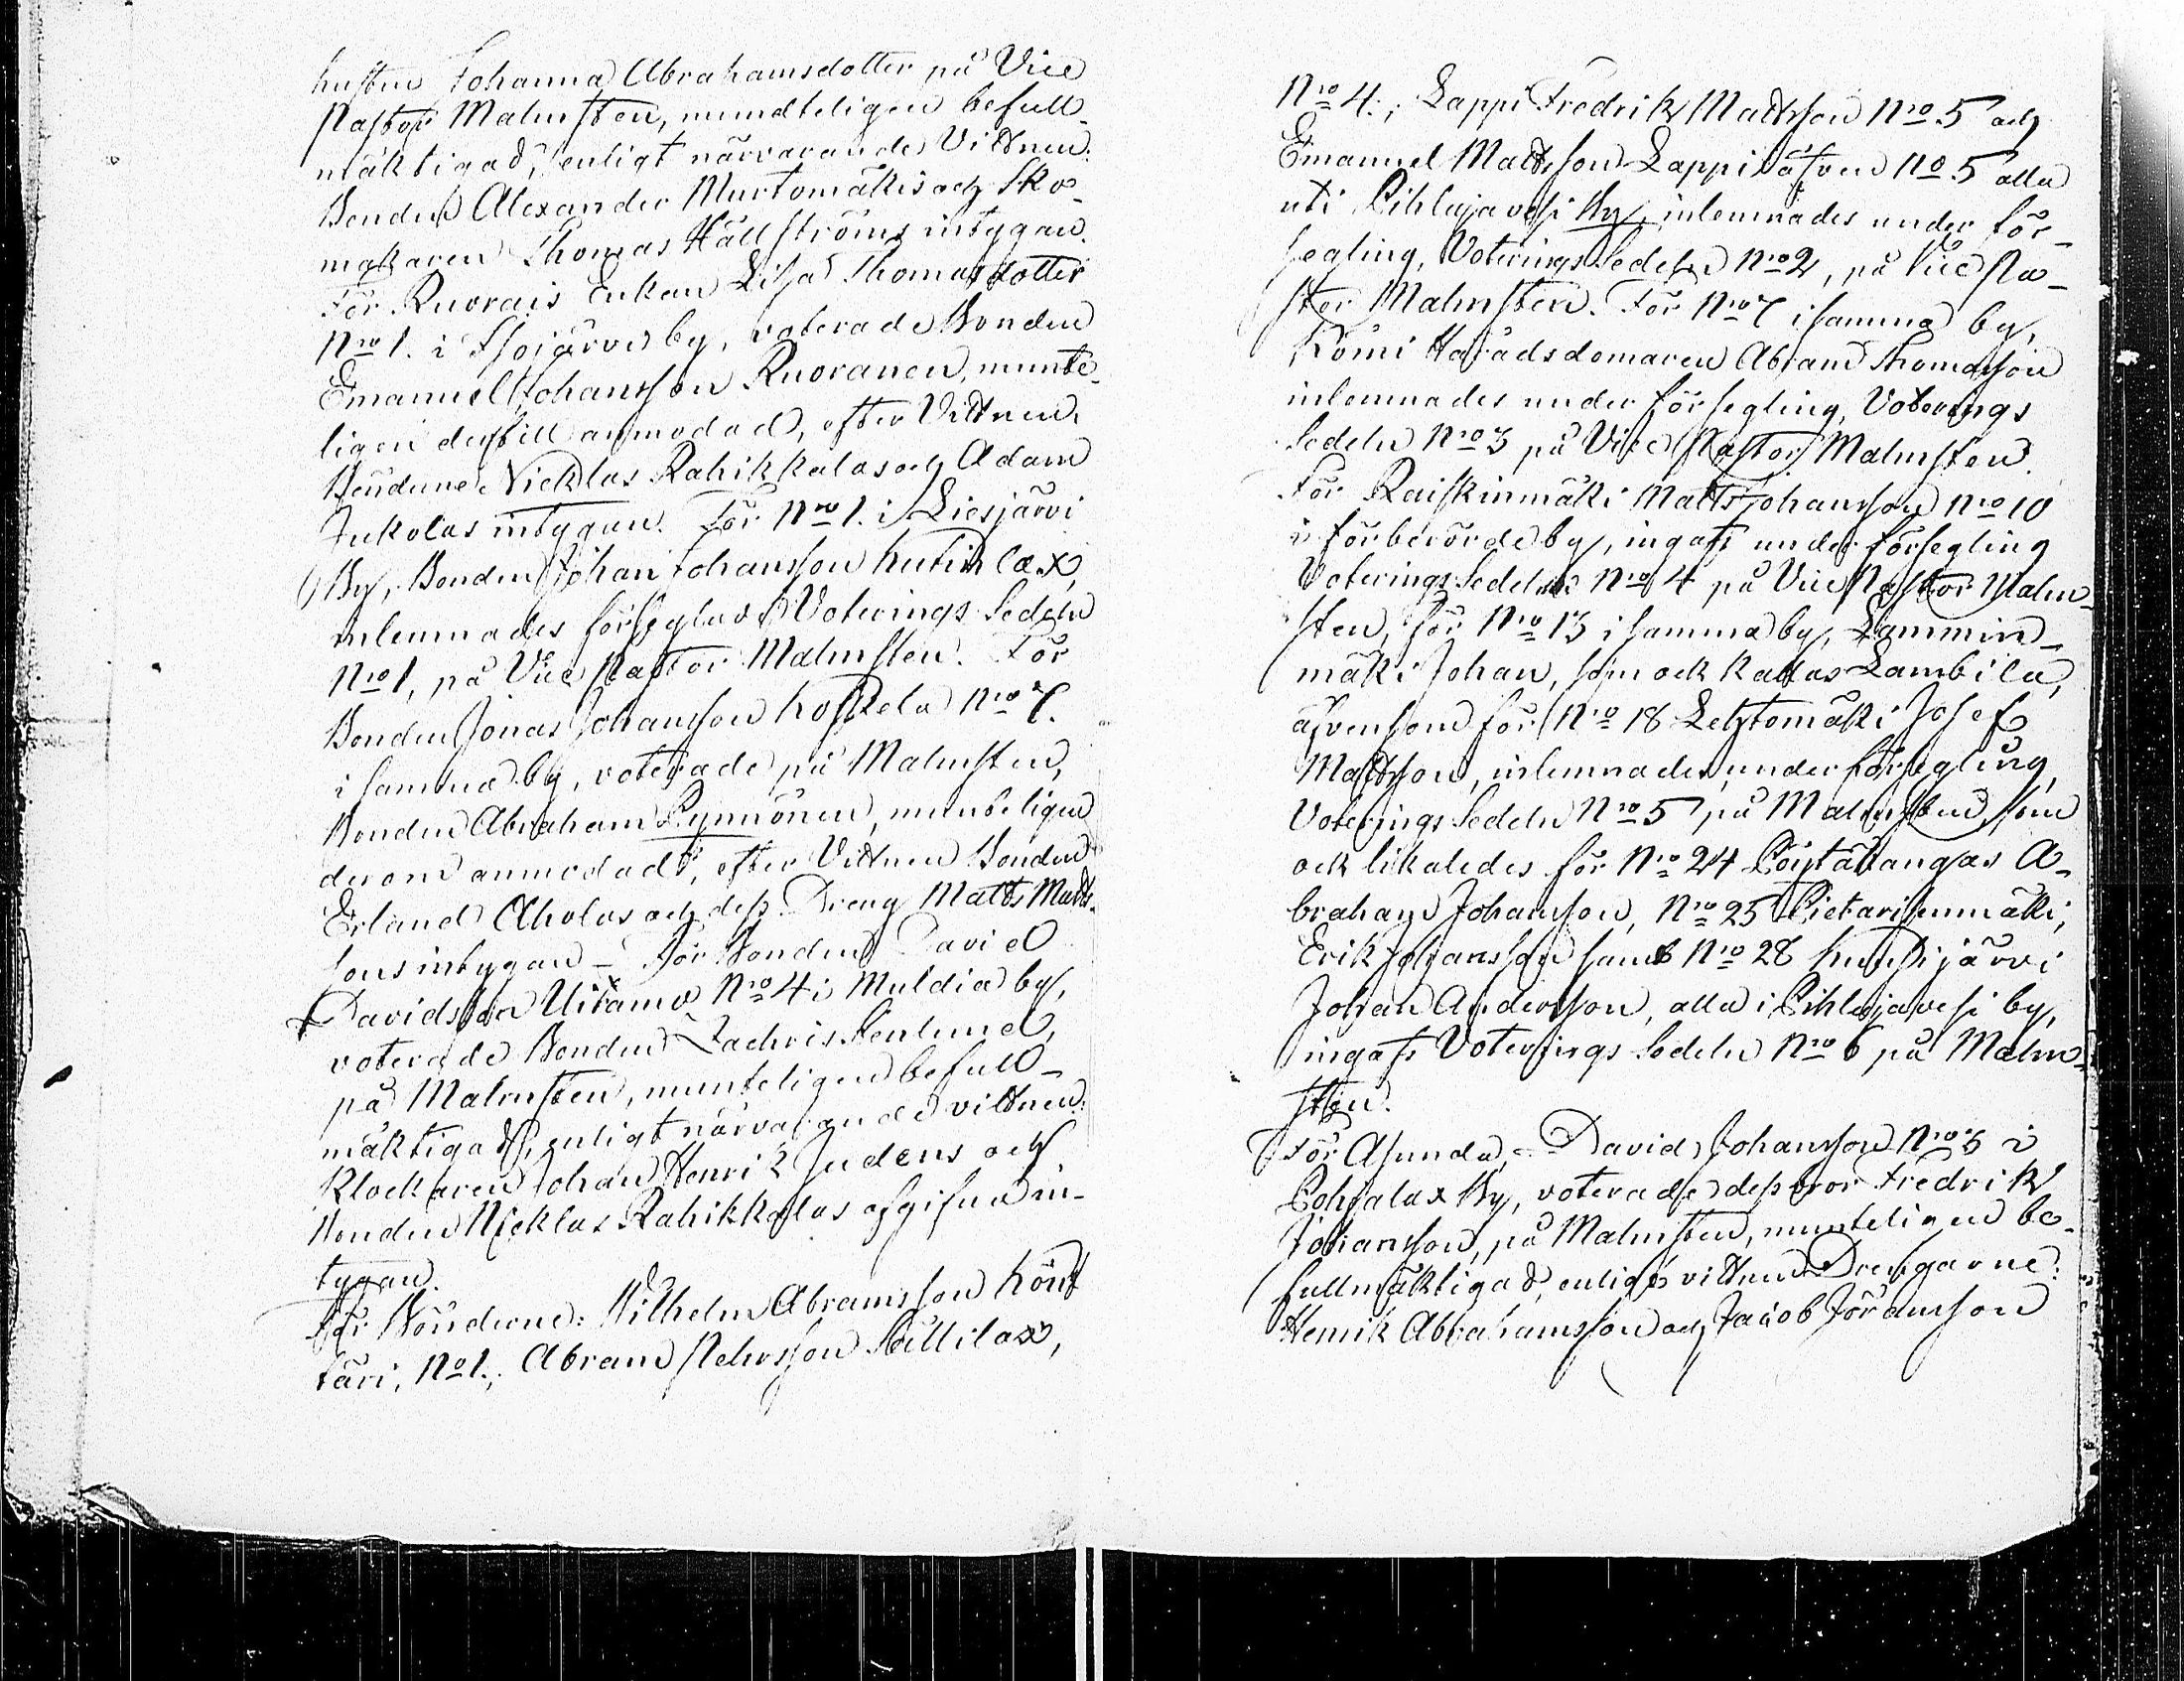 hustru Johanna Abrahamsdotter på Vice
Pastor Malmsten, mundteligen befull-
mäktigad, enligt närvarande Vittnen:
Bonden Alexander Murtomäkis och Sko-
makaren Thomas Hällströms intygan.
För Ruorais Enkan Lisa Thomasdotter
Nro 1. i Ilsojärvi by, voterade Bonden
Emanuel Johansson Ruoranen, munte-
ligen dertill anmodad, efter Vittnen
Bönderne Nicklas Rahikkalas och Adam
Jukolas intygan. För Nro 1. i Liesjärvi
By, Bonden Johan Johansson Kutulax,
inlemnades förseglad Voterings Sedeln
Nro 1, på Vice Pastor Malmsten. För
Bonden Jonas Johansson Koskela Nro 7.
i samma by, voterade på Malmsten,
Bonden Abraham Pynnönen, munteligen
derom anmodad, efter Vittnen Bonden
Erland Aholas och dess Dreng Matts Matts-
sons intygan – För Bonden David
Davidsson Uitamo Nro 4 i Muldia by,
voterade Bonden Zachris Stenlund,
på Malmsten, munteligen befull-
mäktigad, enligt närvarande vittnen:
Klockaren Johan Henrik Judens och
Bonden Nicklas Rahikkalas afgifna in-
tygan.
För Bönderne: Wilhelm Abramsson Könt
täri, No 1.; Abram Pehrsson Sällilax,
Nro 4.; Lappi Fredrik Mattsson Nro 5 och
Emanuel Mattsson Lappi äfven No 5 alla
uti Pihlajavesi By, inlemnades under för-
segling, Voterings Sedeln Nro 2, på Vice Pa-
stor Malmsten. För Nro 7 i samma by,
Kömi Häradsdomaren Abram Thomasson
inlemnades under försegling, Voterings
Sedeln Nro 3 på Vice Pastor Malmsten.
För Raiskinmäki Matts Johansson Nro 10
i förberörde by, ingafs under försegling
Voterings Sedeln Nro 4 på Vice Pastor Malm-
sten, för Nro 13 i samma by, Lammin-
mäki Johan, som ock kallas Lambila,
äfvensom för Nro 18 Lehtomäki Josef
Mattsson, inlemnades under försegling,
Voterings Sedeln Nro 5 på Malmsten, som
ock likaledes för Nro 24 Pöytäkangas A-
braham Johansson, Nro 25 Pietarisenmäki,
Erik Johansson samt Nro 28 Kuusijärvi
Johan Andersson, alla i Pihlajavesi by,
ingafs Voterings Sedeln Nro 6 på Malm-
sten.
För Asunda, David Johansson Nro 5 i
Pohjalax By, voterade dess bror Fredrik
Johansson, på Malmsten, munteligen be-
fullmäktigad, enligt vittnen Drengarne:
Henrik Abrahamsson och Jacob Göransson